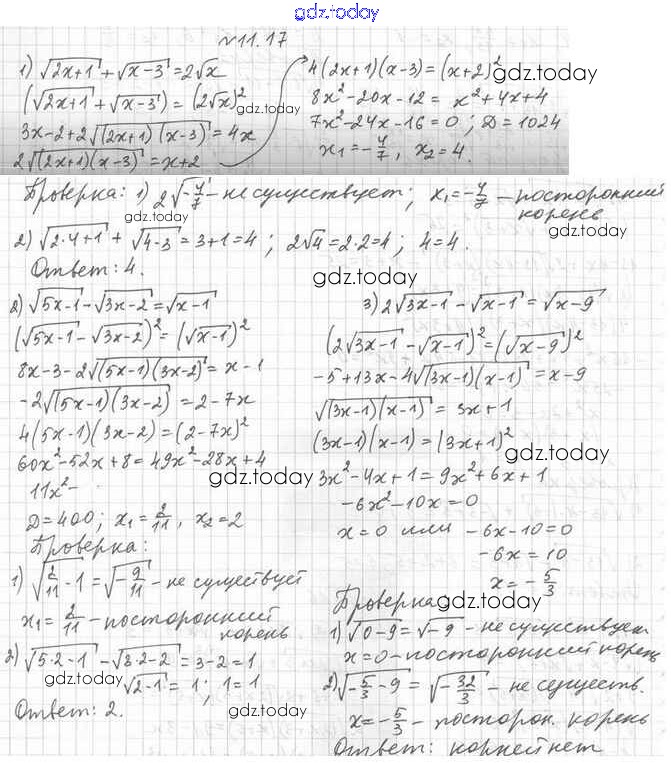 gdz.today
№11.17
1) √(2x+1) + √(x-3) = 2√x
(√(2x+1) + √(x-3)) = (2√x)²
gdz.today
3x-2+2√((2x+1)(x-3)) = 4x
2√((2x+1)(x-3)) = x+2
4(2x+1)(x-3) = (x+2)²
gdz.today
8x²-20x-12 = x²+4x+4
7x²-24x-16=0; D=1024
x₁=-4/7, x₂=4.
Проверка: 1) 2√(-4/7) - не существует; x₁=-4/7 - посторонний корень
gdz.today
2) √(2·4+1) + √(4-3) = 3+1=4; 2√4=2·2=4; 4=4.
gdz.today
Ответ: 4.
gdz.today
2) √(5x-1) - √(3x-2) = √(x-1)
(√(5x-1) - √(3x-2))² = (√(x-1))²
8x-3-2√((5x-1)(3x-2)) = x-1
-2√((5x-1)(3x-2)) = 2-7x
4(5x-1)(3x-2) = (2-7x)²
60x²-52x+8=49x²-28x+4
gdz.today
11x²-
D=400; x₁=2/11, x₂=2
Проверка:
1) √(2/11 - 1) = √(-9/11) - не существует
x₁=2/11 - посторонний корень
2) √(5·2-1) - √(3·2-2) = 3-2=1
gdz.today
√(2-1) = 1; 1=1
Ответ: 2.
gdz.today
3) 2√(3x-1) - √(x-1) = √(x-9)
(2√(3x-1) - √(x-1))² = (√(x-9))²
-5+13x-4√((3x-1)(x-1)) = x-9
√((3x-1)(x-1)) = 3x+1
(3x-1)(x-1) = (3x+1)²
gdz.today
3x²-4x+1=9x²+6x+1
-6x²-10x=0
x=0 или -6x-10=0
-6x=10
x=-5/3
Проверка
gdz.today
1) √(0-9) = √(-9) - не существует
x=0 - посторонний корень
2) √(-5/3 - 9) = √(-32/3) - не существ.
x=-5/3 - посторон. корень
Ответ: корней нет